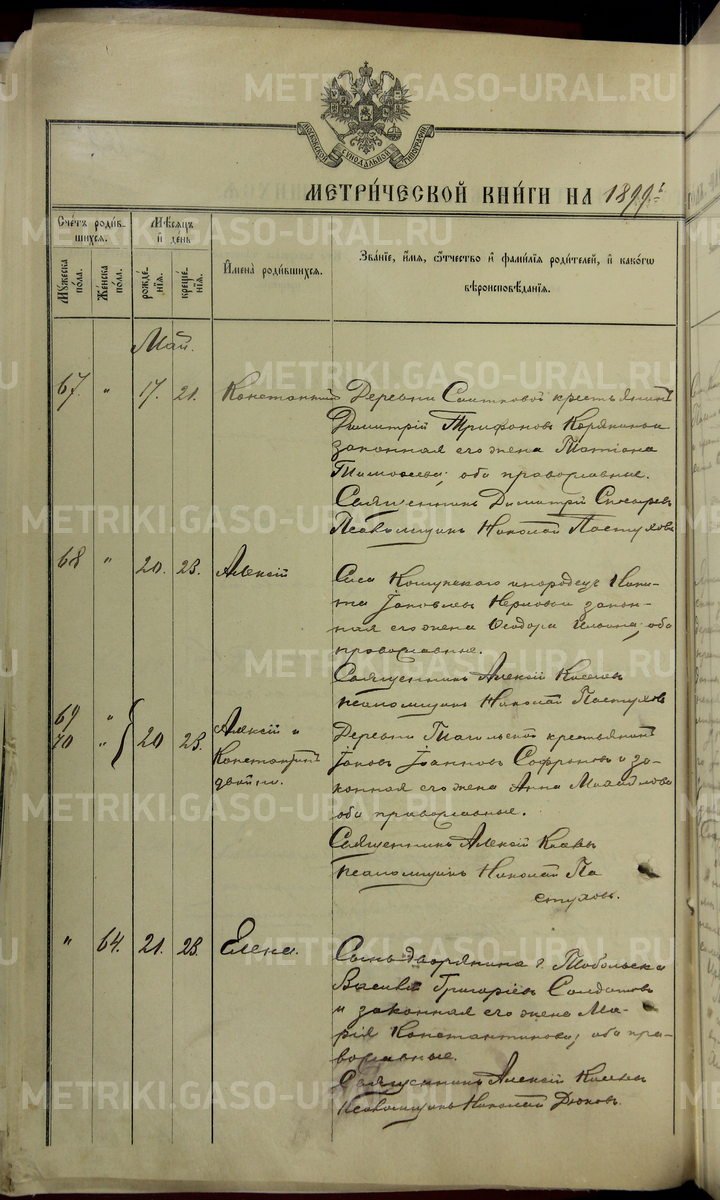 METRIKI.GASO-URAL.RU
МОСКОВСКОЙ СѴНОДАЛЬНОЙ ТИПОГРАФІИ
МЕТРИ́ЧЕСКОЙ КНИ́ГИ НА 1899 г.
Сче́тъ роди́вшихся.
Мꙋ́жеска по́ла.
Же́нска по́ла.
Мѣ́сяцъ и҆ день
рожде́нїѧ.
креще́нїѧ.
И҆мена̀ роди́вшихся.
Зва́нїе, и҆́мѧ, ѻ҆́тчество и҆ фами́лїѧ роди́телей, и҆ како́гѡ
вѣроисповѣ́данїѧ.
Май.
67. " 17. 21. Константинъ
Деревни крестьянинъ
Димитрій Трифоновъ
законная его жена Татіана
Тимоѳеева; оба православные.
Священникъ Димитрій
Псаломщикъ Николай Пастуховъ
68 " 20. 23. Алексій
Села Кошукскаго инородецъ Ники-
та Іаковлевъ и закон-
ная его жена Ѳеодора Ильина, оба
православные.
Священникъ Алексій
псаломщикъ Николай Пастуховъ
69 "
70 " 20 23. Алексій и
Константинъ
двойни.
Деревни Тагильской крестьянинъ
Іаковъ Іоанновъ Софроновъ и за-
конная его жена Анна Михайлова
оба православные.
Священникъ Алексій
псаломщикъ Николай Па
стуховъ.
" 64. 21. 23. Елена.
Сынъ дворянина г. Тобольска
Василій Григоріевъ Солдатовъ
и законная его жена Ма-
рія Константинова; оба пра-
вославные.
Священникъ Алексій
Псаломщикъ Николай